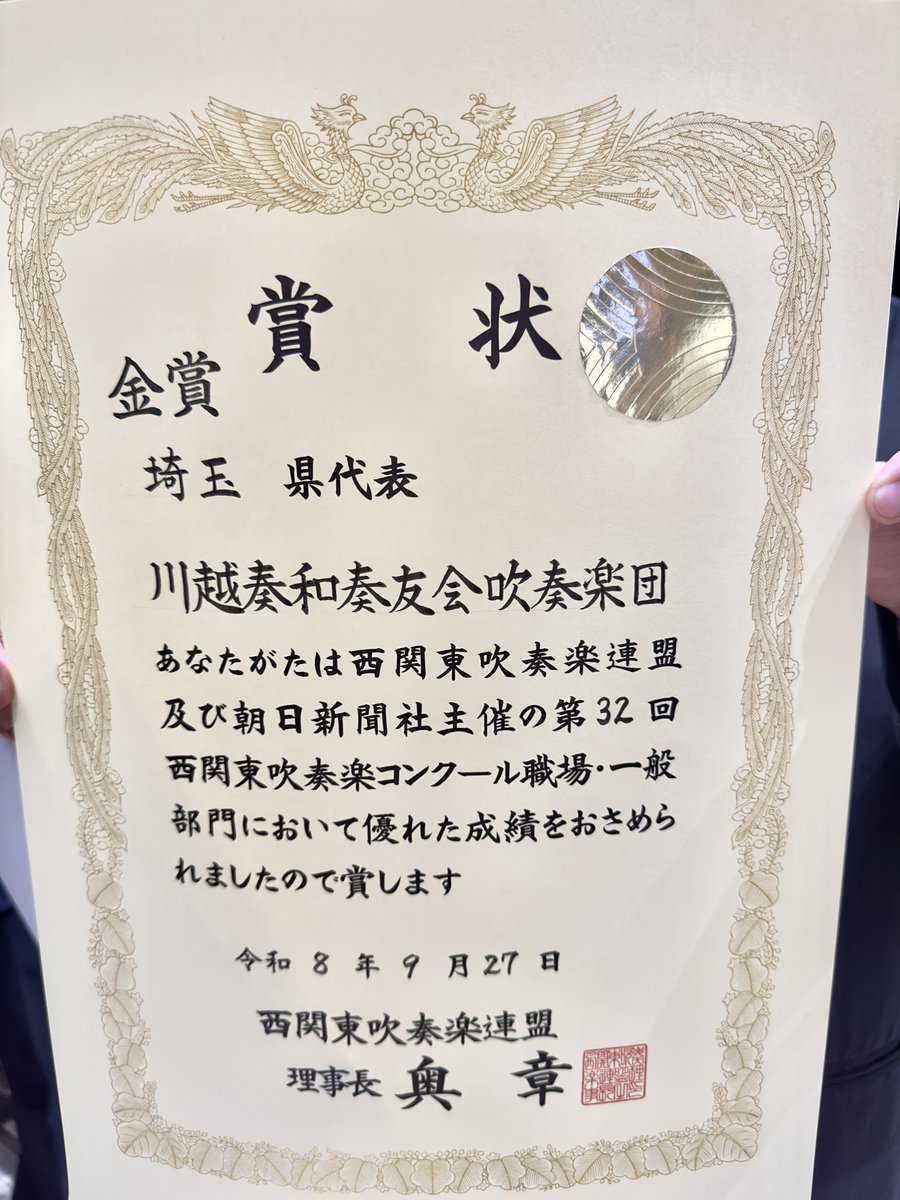 賞状
金賞
埼玉 県代表
川越奏和奏友会吹奏楽団
あなたがたは西関東吹奏楽連盟
及び朝日新聞社主催の第32回
西関東吹奏楽コンクール職場・一般
部門において優れた成績をおさめら
れましたので賞します
令和 8 年 9 月 27 日
西関東吹奏楽連盟
理事長 奥 章